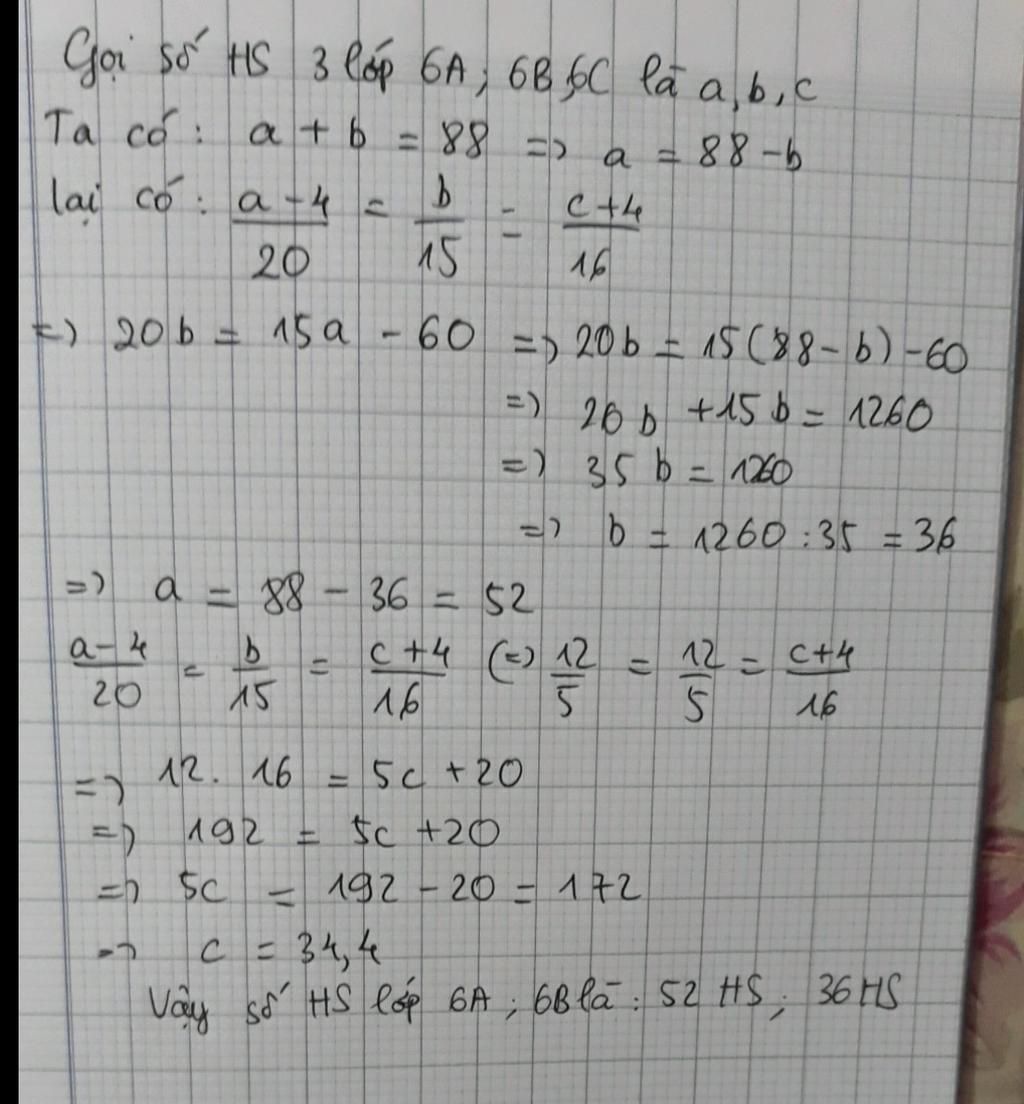 Gọi số HS 3 lớp 6A; 6B 6C là a, b, c
Ta có: a + b = 88 => a = 88 - b
lại có: (a - 4)/20 = b/15 = (c + 4)/16
=> 20b = 15a - 60 => 20b = 15(88 - b) - 60
=> 20b + 15b = 1260
=> 35b = 1260
=> b = 1260 : 35 = 36
=> a = 88 - 36 = 52
(a - 4)/20 = b/15 = (c + 4)/16 (=) 12/5 = 12/5 = (c + 4)/16
=> 12. 16 = 5c + 20
=> 192 = 5c + 20
=> 5c = 192 - 20 = 172
=> c = 34,4
Vậy số HS lớp 6A; 6B là: 52 HS; 36 HS